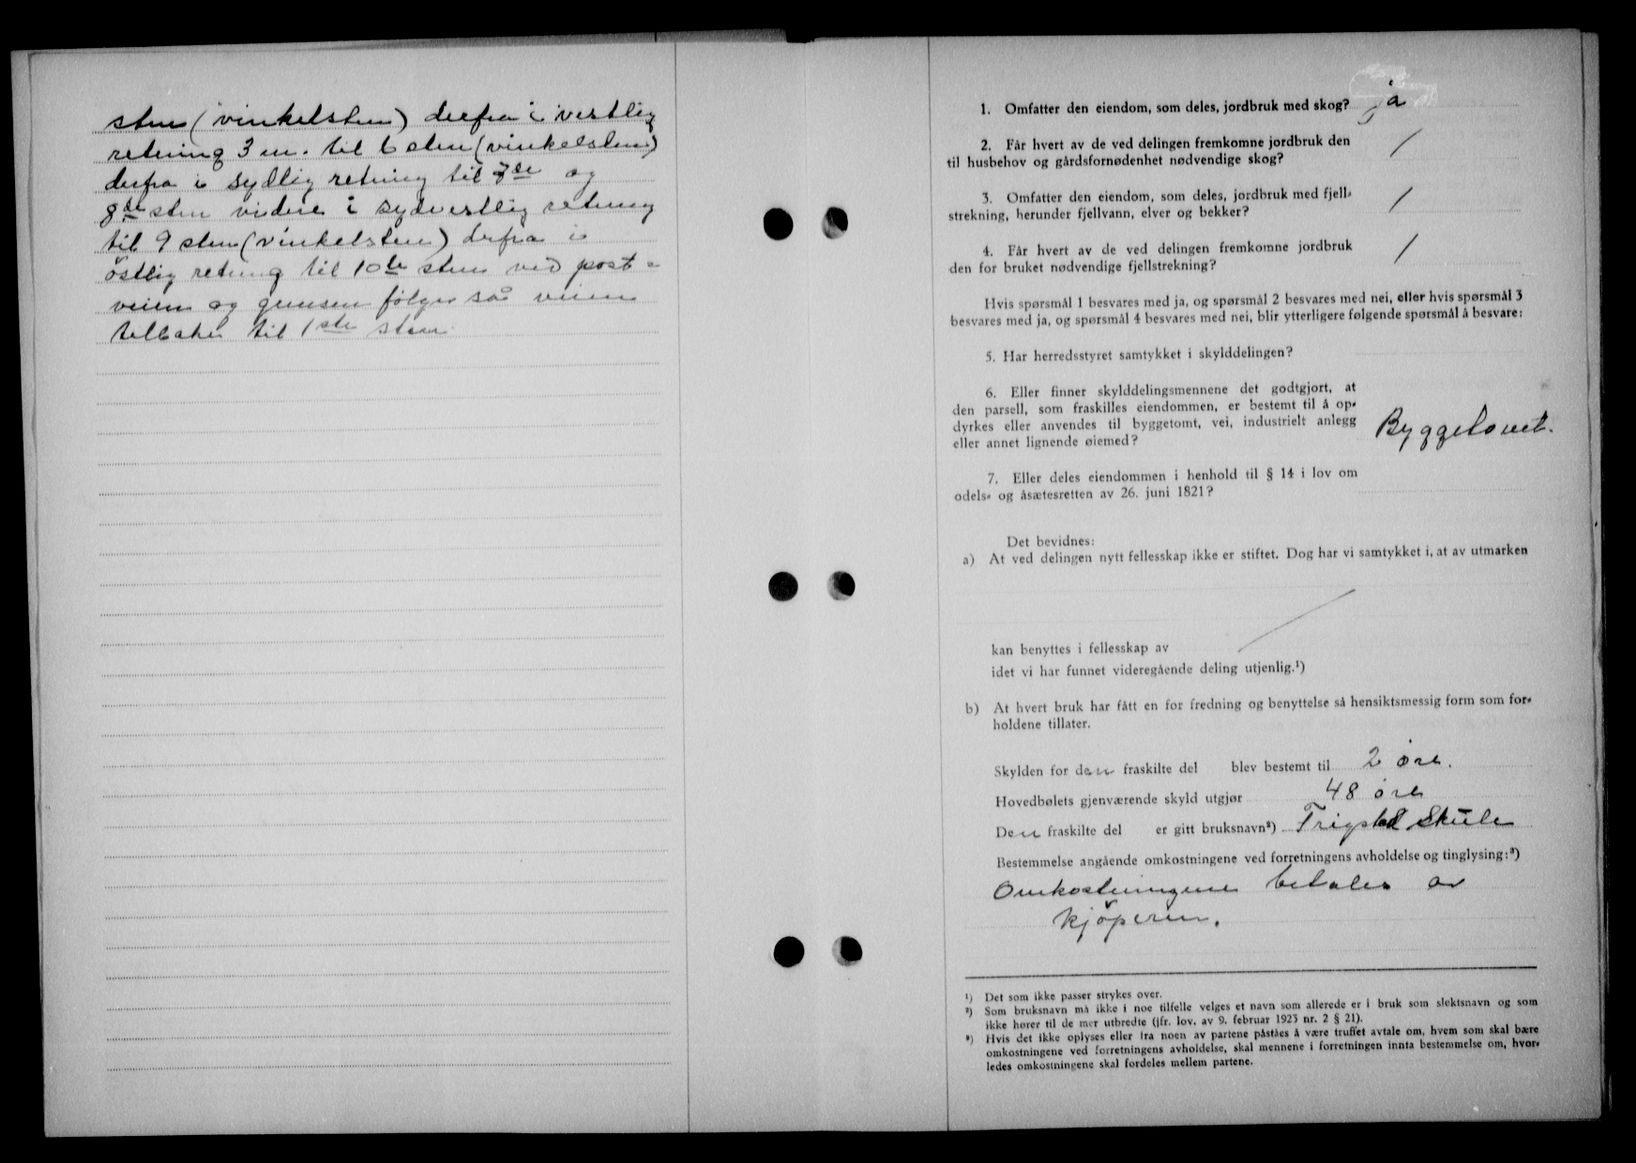 sten (vinkelsten) derfra i vestlig
retning 3 m. til 6 sten (vinkelsten)
derfra i sydlig retning til 7de og
8de sten videre i sydvestlig retning
til 9 sten (vinkelsten) derfra i
östlig retning til 10de sten ved post-
veien og grensen følger så veien
tilbake til 1ste sten.
1. Omfatter den eiendom, som deles, jordbruk med skog? ja
2. Får hvert av de ved delingen fremkomne jordbruk den
til husbehov og gårdsfornødenhet nødvendige skog? /
3. Omfatter den eiendom, som deles, jordbruk med fjell-
strekning, herunder fjellvann, elver og bekker? /
4. Får hvert av de ved delingen fremkomne jordbruk
den for bruket nødvendige fjellstrekning? /
Hvis spørsmål 1 besvares med ja, og spørsmål 2 besvares med nei, eller hvis spørsmål 3
besvares med ja, og spørsmål 4 besvares med nei, blir ytterligere følgende spørsmål å besvare:
5. Har herredsstyret samtykket i skylddelingen?
6. Eller finner skylddelingsmennene det godtgjort, at
den parsell, som fraskilles eiendommen, er bestemt til å op-
dyrkes eller anvendes til byggetomt, vei, industrielt anlegg
eller annet lignende øiemed? Byggetomt.
7. Eller deles eiendommen i henhold til § 14 i lov om
odels- og åsætesretten av 26. juni 1821?
Det bevidnes:
a) At ved delingen nytt fellesskap ikke er stiftet. Dog har vi samtykket i, at av utmarken
kan benyttes i fellesskap av
idet vi har funnet videregående deling utjenlig.¹)
b) At hvert bruk har fått en for fredning og benyttelse så hensiktsmessig form som for-
holdene tillater.
Skylden for den fraskilte del blev bestemt til 2 öre.
Hovedbølets gjenværende skyld utgjør 48 öre
Den fraskilte del er gitt bruksnavn²) Trigstad Skule
Bestemmelse angående omkostningene ved forretningens avholdelse og tinglysing:³)
Omkostningene betales av
kjöperen.
¹) Det som ikke passer strykes over.
²) Som bruksnavn må ikke i noe tilfelle velges et navn som allerede er i bruk som slektsnavn og som
ikke hører til de mer utbredte (jfr. lov. av 9. februar 1923 nr. 2 § 21).
³) Hvis det ikke oplyses eller fra noen av partene påståes å være truffet avtale om, hvem som skal bære
omkostningene ved forretningens avholdelse, skal mennene i forretningen innta bestemmelse om, hvor-
ledes omkostningene skal fordeles mellem partene.